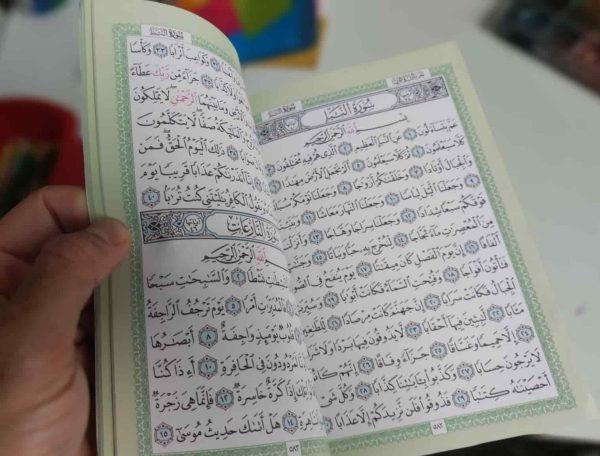 الجزء الثلاثون
سُورَةُ النَّبَإِ
سُورَةُ النَّبَإِ
بِسْمِ اللَّهِ الرَّحْمَٰنِ الرَّحِيمِ
عَمَّ يَتَسَآءَلُونَ ١ عَنِ ٱلنَّبَإِ ٱلْعَظِيمِ ٢ ٱلَّذِى هُمْ فِيهِ مُخْتَلِفُونَ ٣
كَلَّا سَيَعْلَمُونَ ٤ ثُمَّ كَلَّا سَيَعْلَمُونَ ٥ أَلَمْ نَجْعَلِ ٱلْأَرْضَ مِهَٰدًا ٦
وَٱلْجِبَالَ أَوْتَادًا ٧ وَخَلَقْنَٰكُمْ أَزْوَٰجًا ٨ وَجَعَلْنَا نَوْمَكُمْ
سُبَاتًا ٩ وَجَعَلْنَا ٱلَّيْلَ لِبَاسًا ١٠ وَجَعَلْنَا ٱلنَّهَارَ مَعَاشًا ١١ وَبَنَيْنَا
فَوْقَكُمْ سَبْعًا شِدَادًا ١٢ وَجَعَلْنَا سِرَاجًا وَهَّاجًا ١٣ وَأَنزَلْنَا
مِنَ ٱلْمُعْصِرَٰتِ مَآءً ثَجَّاجًا ١٤ لِّنُخْرِجَ بِهِۦ حَبًّا وَنَبَاتًا ١٥
أَلْفَافًا ١٦ إِنَّ يَوْمَ ٱلْفَصْلِ كَانَ مِيقَٰتًا ١٧ يَوْمَ يُنفَخُ فِى ٱلصُّورِ
فَتَأْتُونَ أَفْوَاجًا ١٨ وَفُتِحَتِ ٱلسَّمَآءُ فَكَانَتْ أَبْوَٰبًا ١٩ وَسُيِّرَتِ
ٱلْجِبَالُ فَكَانَتْ سَرَابًا ٢٠ إِنَّ جَهَنَّمَ كَانَتْ مِرْصَادًا ٢١ لِّلطَّٰغِينَ
مَـَٔابًا ٢٢ لَّٰبِثِينَ فِيهَآ أَحْقَابًا ٢٣ لَّا يَذُوقُونَ فِيهَا بَرْدًا وَلَا شَرَابًا
إِلَّا حَمِيمًا وَغَسَّاقًا ٢٥ جَزَآءً وِفَاقًا ٢٦ إِنَّهُمْ كَانُوا۟
لَا يَرْجُونَ حِسَابًا ٢٧ وَكَذَّبُوا۟ بِـَٔايَٰتِنَا كِذَّابًا ٢٨ وَكُلَّ شَىْءٍ
أَحْصَيْنَٰهُ كِتَٰبًا ٢٩ فَذُوقُوا۟ فَلَن نَّزِيدَكُمْ إِلَّا عَذَابًا
٥٨٢
سُورَةُ النَّبَإِ
وَكَوَاعِبَ أَتْرَابًا ٣٣ وَكَأْسًا
جَزَآءً مِّن رَّبِّكَ عَطَآءً
وَمَا بَيْنَهُمَا ٱلرَّحْمَٰنِ لَا يَمْلِكُونَ
صَفًّا لَّا يَتَكَلَّمُونَ
ذَٰلِكَ ٱلْيَوْمُ ٱلْحَقُّ فَمَن
أَنذَرْنَٰكُمْ عَذَابًا قَرِيبًا يَوْمَ
ٱلْكَافِرُ يَٰلَيْتَنِى كُنتُ تُرَٰبًۢا ٤٠
سُورَةُ النَّازِعَاتِ
ٱللَّهِ ٱلرَّحْمَٰنِ ٱلرَّحِيمِ
نَشْطًا ٢ وَٱلسَّٰبِحَٰتِ سَبْحًا
أَمْرًا ٥ يَوْمَ تَرْجُفُ ٱلرَّاجِفَةُ
قُلُوبٌ يَوْمَئِذٍ وَاجِفَةٌ ٨
لَمَرْدُودُونَ فِى ٱلْحَافِرَةِ ١٠ أَءِذَا كُنَّا
إِذًا كَرَّةٌ خَاسِرَةٌ ١٢ فَإِنَّمَا هِىَ زَجْرَةٌ
١٤ هَلْ أَتَىٰكَ حَدِيثُ مُوسَىٰٓ ١٥
٥٨٣